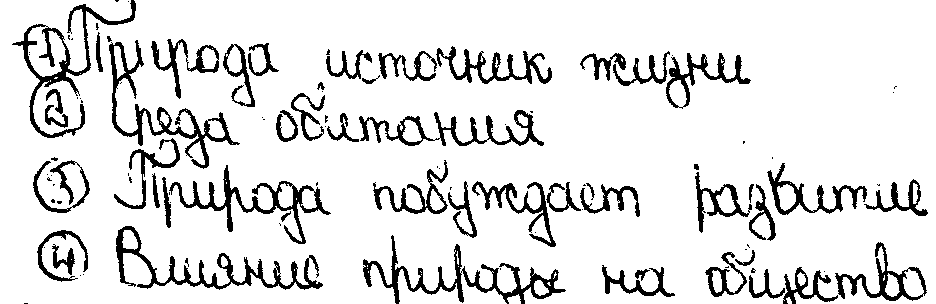 1 Природа источник жизни
2 Среда обитания
3 Природа побуждает развитие
4 Влияние природы на общество